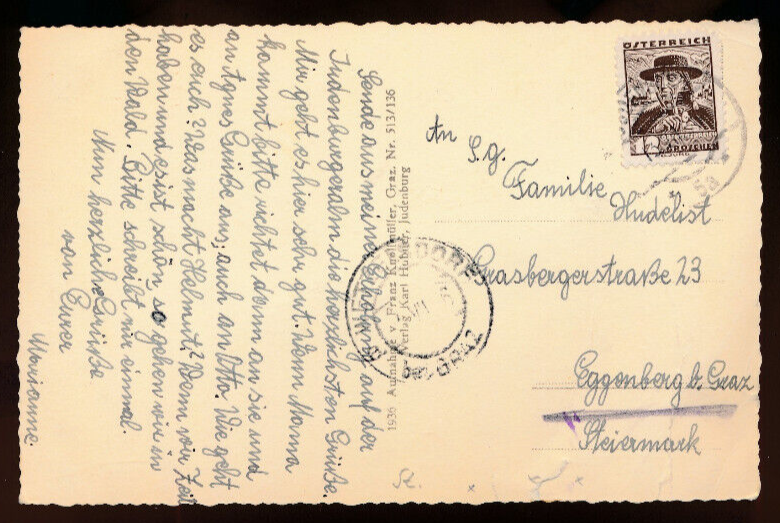 Sende aus meiner Erholung auf der
Judenburgeralm die herzlichsten Grüße.
Mir geht es hier sehr gut. Wenn Mama
kommt bitte richtet dann an sie und
an Agnes Grüße aus, auch an Otto. Wie geht
es euch? Was macht Helmut? Wenn wir Zeit
haben und es ist schön, so gehen wir in
den Wald. Bitte schreibt mir einmal.
Nun herzliche Grüße
von Eurer
Marianne.
1936 Aufnahme v. Franz Knollmüller, Graz. Nr. 513/136
Verlag Karl Hubner, Judenburg
ÖSTERREICH
12
GROSCHEN
An
S.g.
Familie
Hudelist
Grasbergerstraße 23
Eggenberg b. Graz
Steiermark
DORF
bei GRAZ
St.